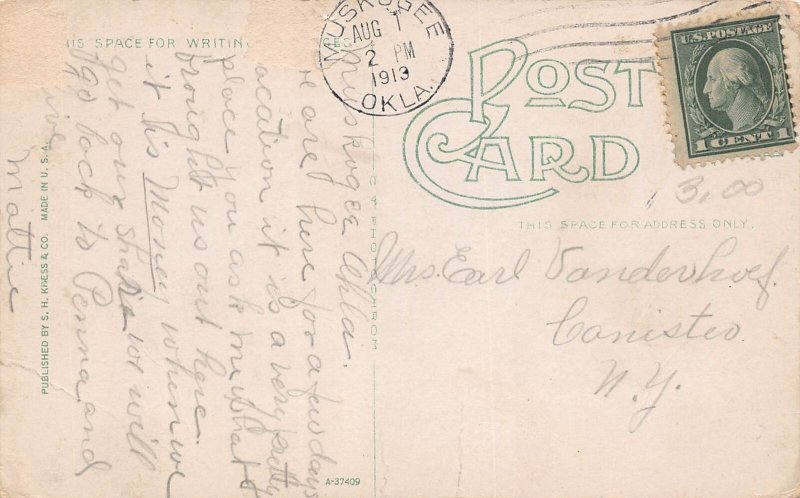 THIS SPACE FOR WRITING
MUSKOGEE
AUG 1
2 PM
1913
OKLA.
U.S. POSTAGE
1 CENT 1
POST CARD
3.00
THIS SPACE FOR ADDRESS ONLY.
Mrs. Earl Vanderhoef
Canisteo
N.Y.
Muskogee Okla.
are here for a few days
vacation it is a very pretty
place you ask me what
brought us out here.
it his Money when we
get our share we will
go back to Penna and
live
Mattie
PUBLISHED BY S. H. KRESS & CO. MADE IN U. S. A.
A-37409